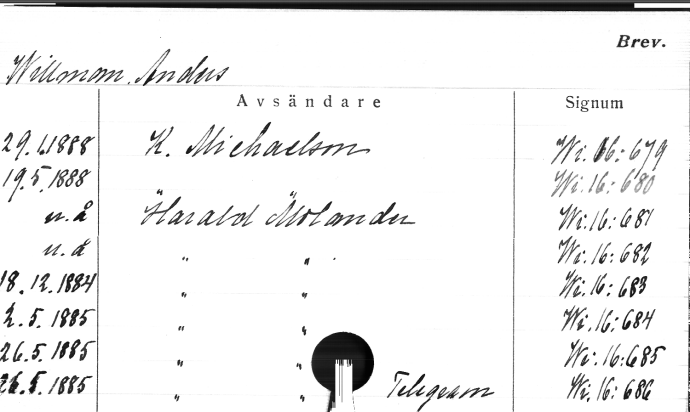 Brev.
Willman, Anders
Avsändare Signum
29.1.1888 K. Michaelson Wi.16:679
19.5.1888 Wi.16:680
u.å Harald Molander Wi.16:681
u.å " " Wi.16:682
18.12.1884 " " Wi.16:683
2.5.1885 " " Wi.16:684
26.5.1885 " " Wi.16:685
26.5.1885 " " Telegram Wi.16:686